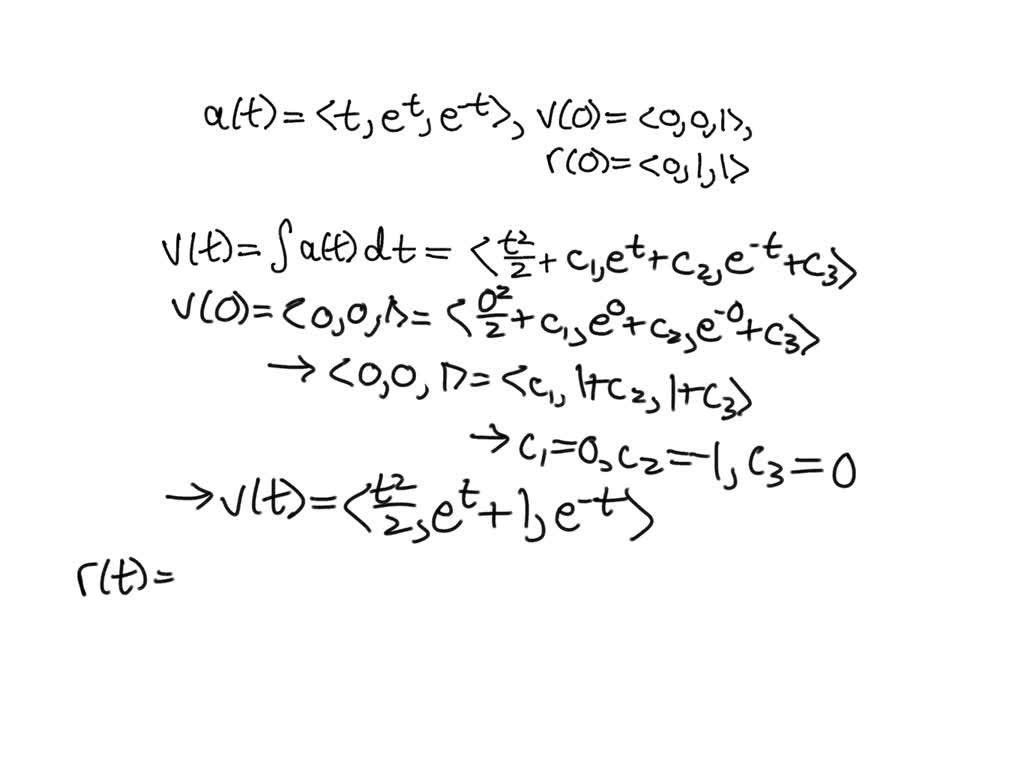 a(t) = <t, e^t, e^-t>, v(0) = <0, 0, 1>,
r(0) = <0, 1, 1>
v(t) = ∫ a(t) dt = <t²/2 + c₁, e^t + c₂, e^-t + c₃>
v(0) = <0, 0, 1> = <0²/2 + c₁, e^0 + c₂, e^-0 + c₃>
→ <0, 0, 1> = <c₁, 1 + c₂, 1 + c₃>
→ c₁ = 0, c₂ = -1, c₃ = 0
→ v(t) = <t²/2, e^t + 1, e^-t>
r(t) =